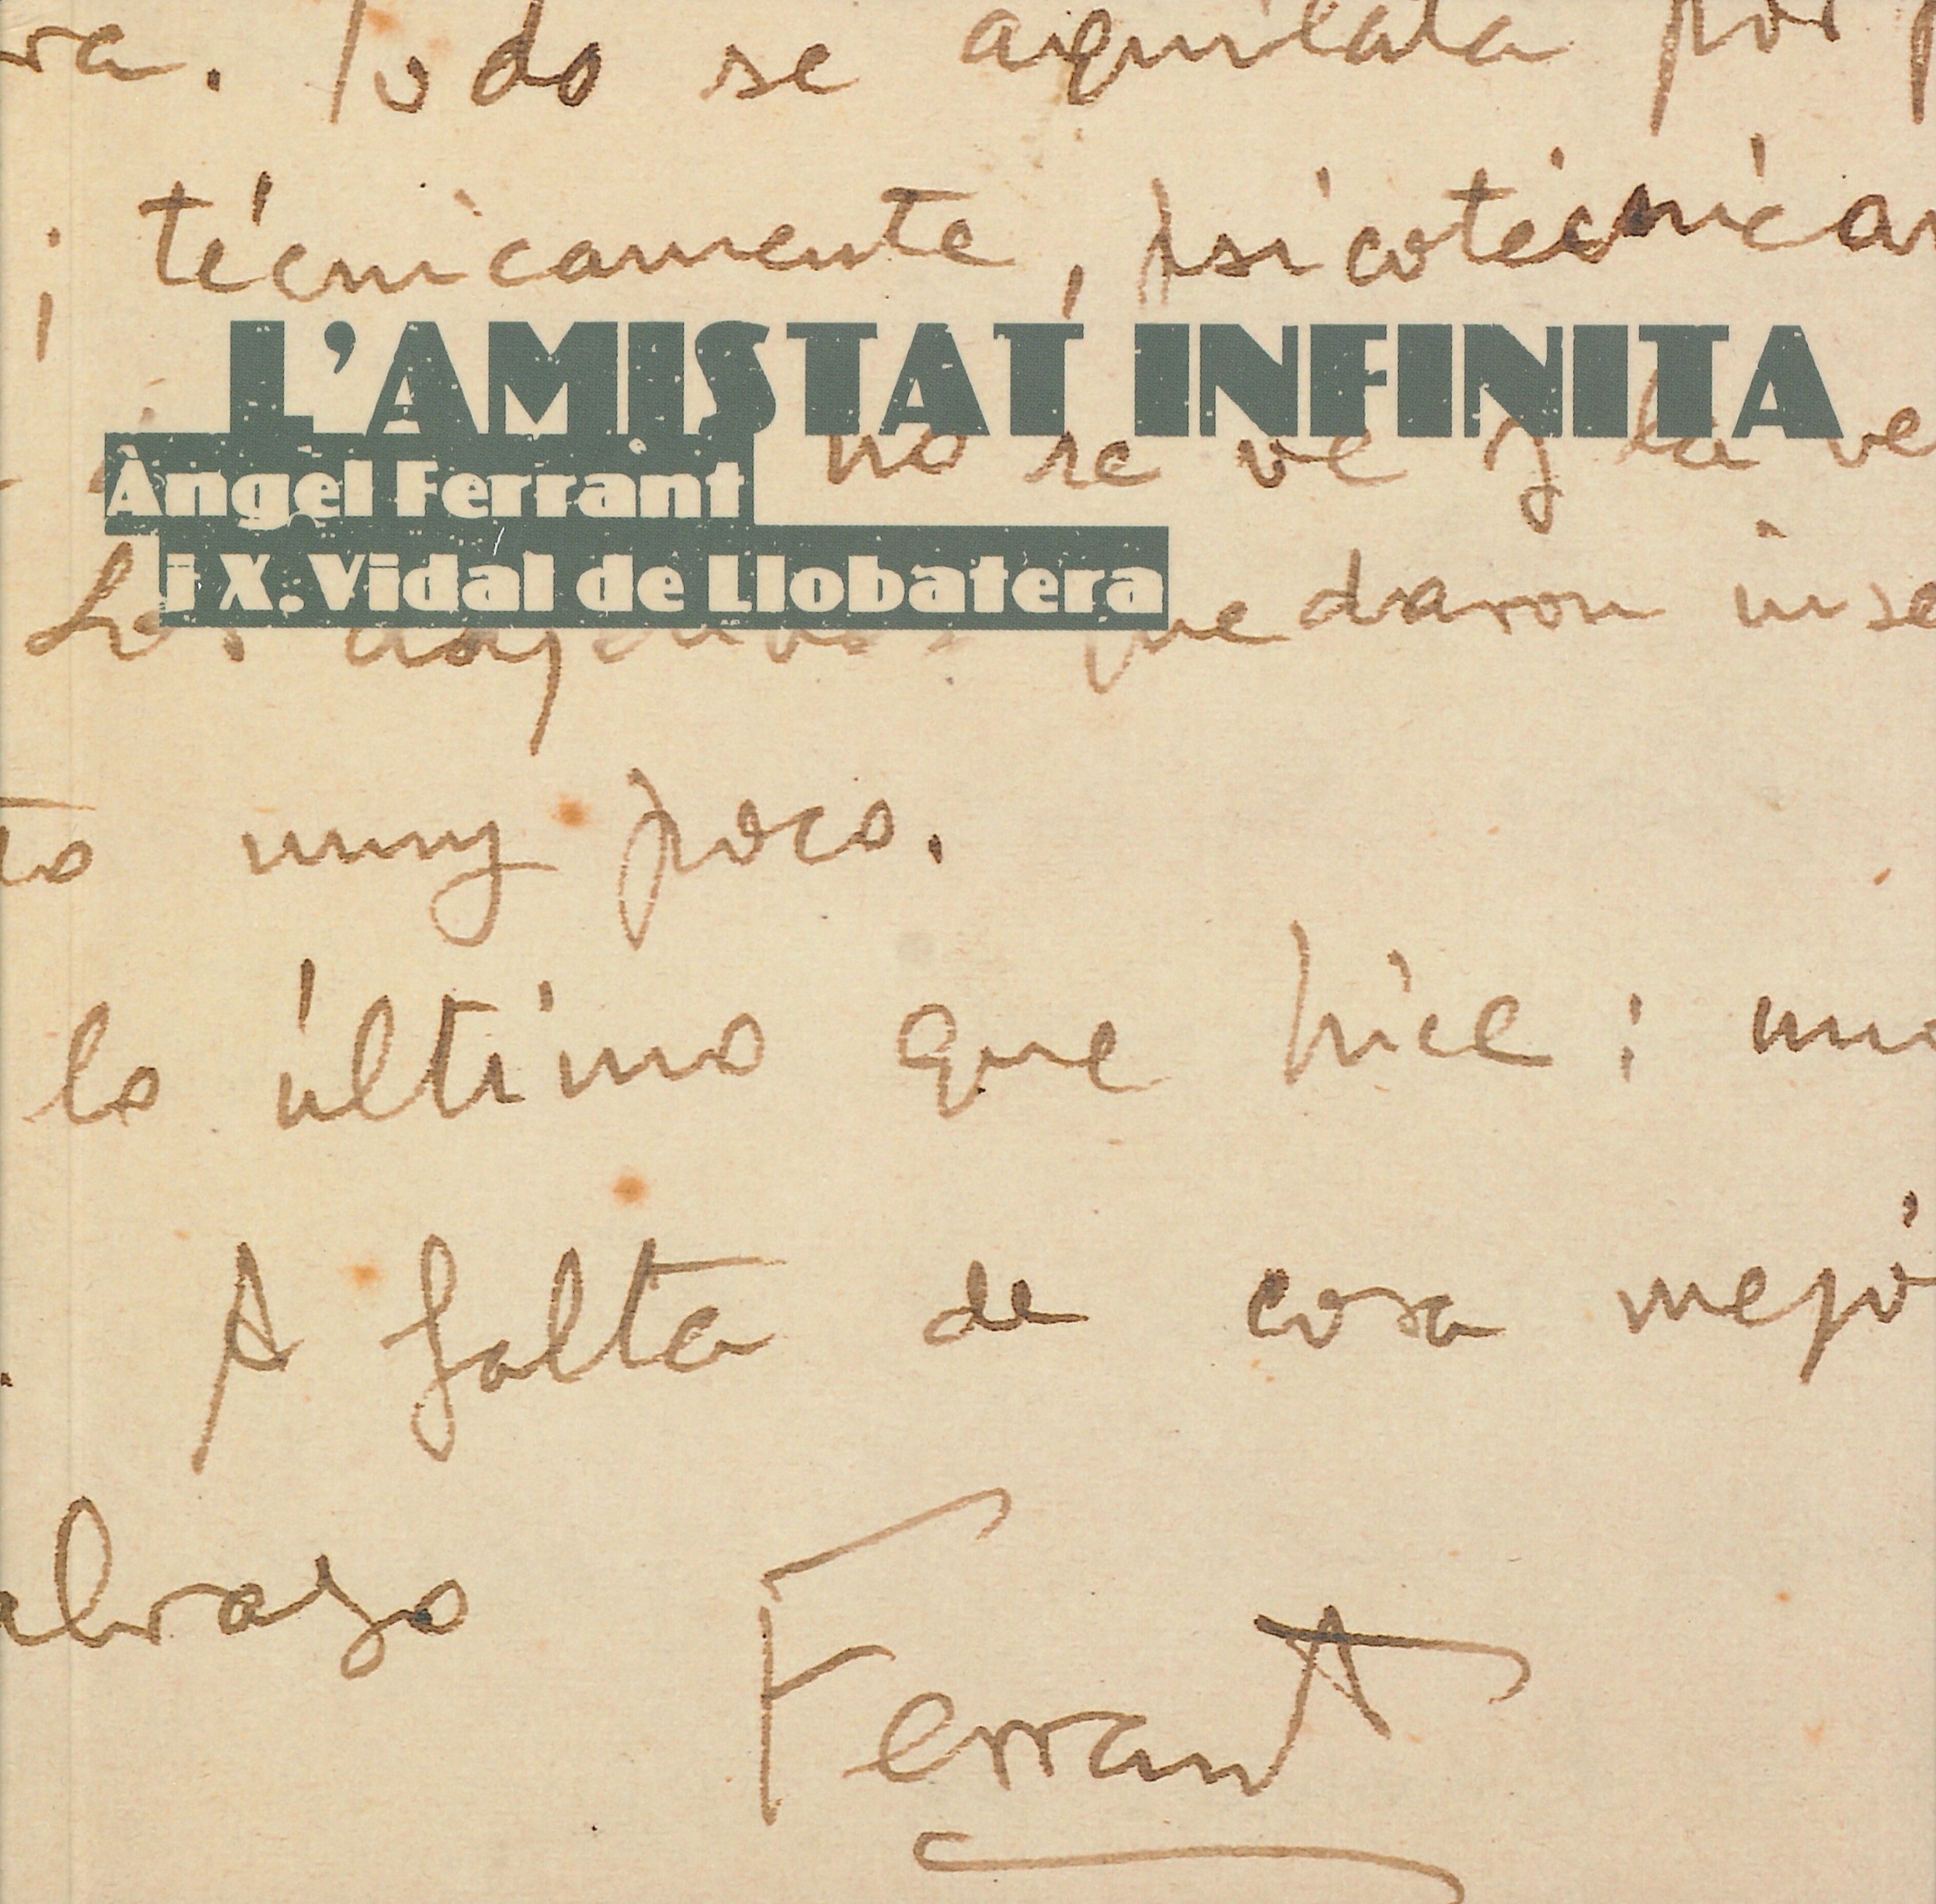 ra. Todo se aquilata por p
; técnicamente, psicotécnicam
L'AMISTAT INFINITA
no se ve y la ve
Àngel Ferrant
i X. Vidal de Llobatera
Los adjetivos quedaron inse
to muy poco.
lo último que hice; un
A falta de cosa mejo
abrazo
Ferrant